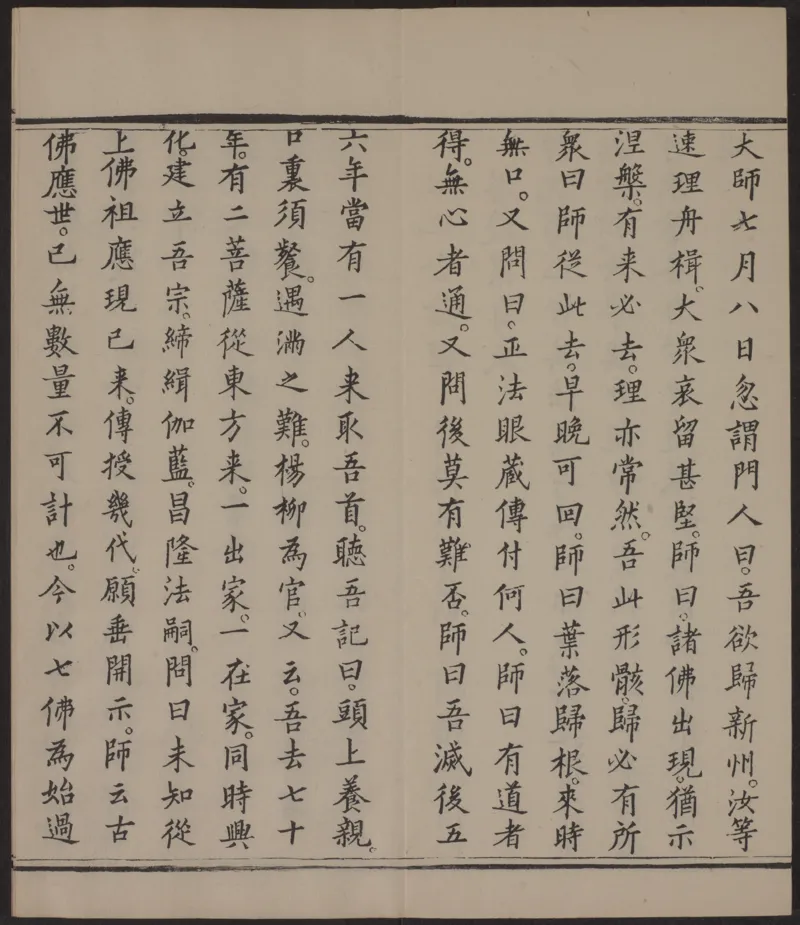 大師七月八日忽謂門人曰。吾欲歸新州。汝等
速理舟楫。大衆哀留甚堅。師曰。諸佛出現。猶示
涅槃。有来必去。理亦常然。吾此形骸。歸必有所
衆曰師從此去。早晚可回。師曰葉落歸根。來時
無口。又問曰。正法眼蔵傳付何人。師曰有道者
得。無心者通。又問後莫有難否。師曰吾滅後五
六年當有一人来取吾首。聽吾記曰。頭上養親。
口裏須餐。遇滿之難。楊柳為官。又云。吾去七十
年。有二菩薩從東方来。一出家。一在家。同時興
化。建立吾宗。締緝伽藍。昌隆法嗣。問曰未知從
上佛祖應現已来。傳授幾代。願垂開示。師云古
佛應世。已無數量不可計也。今以七佛為始過